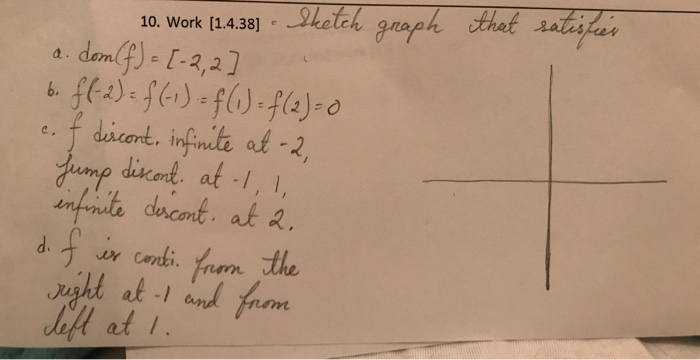 10. Work [1.4.38] - Sketch graph that satisfies
a. dom(f) = [-2,2]
b. f(-2) = f(-1) = f(1) = f(2) = 0
c. f discont. infinite at -2,
Jump discont. at -1, 1,
infinite discont. at 2.
d. f is conti. from the
right at -1 and from
left at 1.